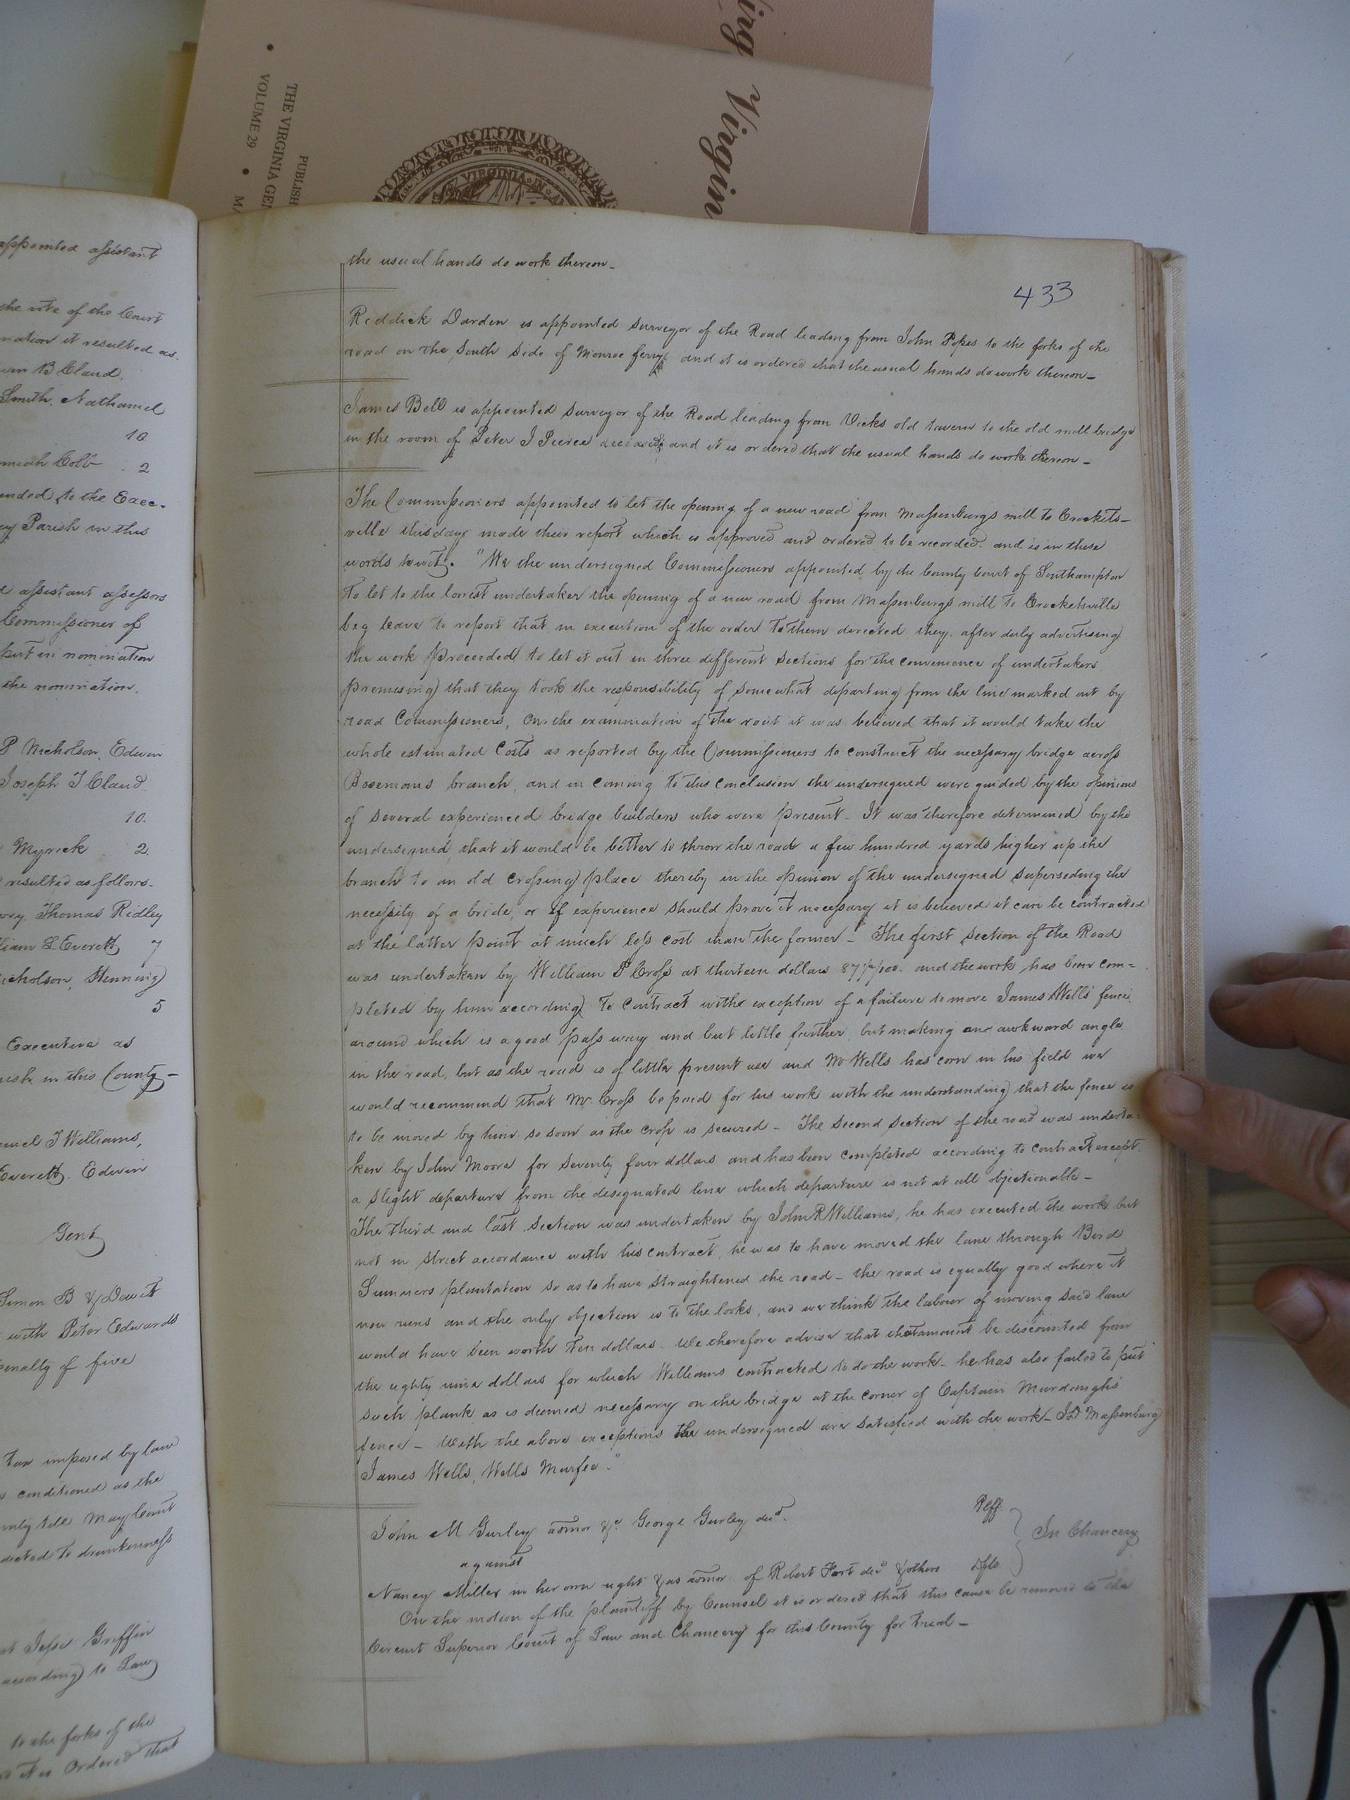 ing Virgin
PUBLISH
THE VIRGINIA GEN
VOLUME 29
VIRGINIA
appointed assistant
the vote of the Court
nation it resulted as
B Claud.
Smith, Nathaniel
10
Cobb 2
ended to the Exec-
Parish in this
assistant assessors
Commissioner of
put in nomination
the nomination.
P Nicholson, Edwin
Joseph T Claud
10.
Myrick 2.
resulted as follows.
Thomas Ridley
liam L Everett 7
icholson, Henning
5
Executive as
in this County-
uel J Williams,
Everett, Edwin
Gent
Simon B & David
with Peter Edwards
penalty of five
tax imposed by law
conditioned as the
till May Court
dicted to drunkenness
Jesse Griffin
according to Law
to the forks of the
ordered that
433
the usual hands do work thereon-
Reddick Darden is appointed surveyor of the Road leading from John Popes to the forks of the
road on the South side of Monroe ferry and it is ordered that the usual hands do work thereon-
James Bell is appointed surveyor of the Road leading from Vicks old tavern to the old mill bridge
in the room of Peter J Pierce deceased and it is ordered that the usual hands do work thereon-
The Commissioners appointed to let the opening of a new road from Massenburgs mill to Crockets-
ville this day made their report which is approved and ordered to be recorded. and is in these
words to wit. "We the undersigned Commissioners appointed by the County Court of Southampton
to let to the lowest undertaker the opening of a new road from Massenburgs mill to Crocketsville
beg leave to report that in execution of the order to them directed they, after duly advertising
the work proceeded to let it out in three different sections for the convenience of undertakers
premising that they took the responsibility of somewhat departing from the line marked out by
road Commissioners, On the examination of the rout it was believed that it would take the
whole estimated costs as reported by the Commissioners to construct the necessary bridge across
branch, and in coming to this conclusion the undersigned were guided by the opinions
of several experienced bridge builders who were present- It was therefore determined by the
undersigned that it would be better to throw the road a few hundred yards higher up the
branch to an old crossing place thereby in the opinion of the undersigned superseding the
necessity of a bride, or if experience should prove it necessary it is believed it can be contracted
at the latter point at much less cost than the former- The first section of the Road
was undertaken by William P Cross at thirteen dollars 87 1/2/100. and the work has been com-
pleted by him according to contract with exception of a failure to move James Wells' fence,
around which is a good pass way and but little further, but making an awkward angle
in the road, but as the road is of little present use and Mr Wells has corn in his field we
would recommend that Mr Cross be paid for his work with the understanding that the fence is
to be moved by him so soon as the crop is secured- The second section of the road was underta-
ken by John Moore for seventy four dollars and has been completed according to contract except
a slight departure from the designated line which departure is not at all objectionable-
The third and last section was undertaken by John R Williams, he has executed the work but
not in strict accordance with his contract, he was to have moved the lane through Bird
Summers plantation so as to have straightened the road- the road is equally good where it
now runs and the only objection is to the looks, and we think the labour of moving said lane
would have been worth Ten dollars. We therefore advise that that amount be discounted from
the eighty nine dollars for which Williams contracted to do the work- he has also failed to put
such plank as is deemed necessary on the bridge at the corner of Captain Murdaugh's
fence- With the above exceptions the undersigned are satisfied with the work- Massenburg
James Wells, Wells Murfee."
John M Gurley admor &c George Gurley decd. Peff
against
In Chancery
Nancy Miller in her own right & as admor of Robert Fort decd & others Dfts
On the motion of the plaintiff by Counsel it is ordered that this cause be removed to the
Circuit Superior Court of Law and Chancery for this County for trial-